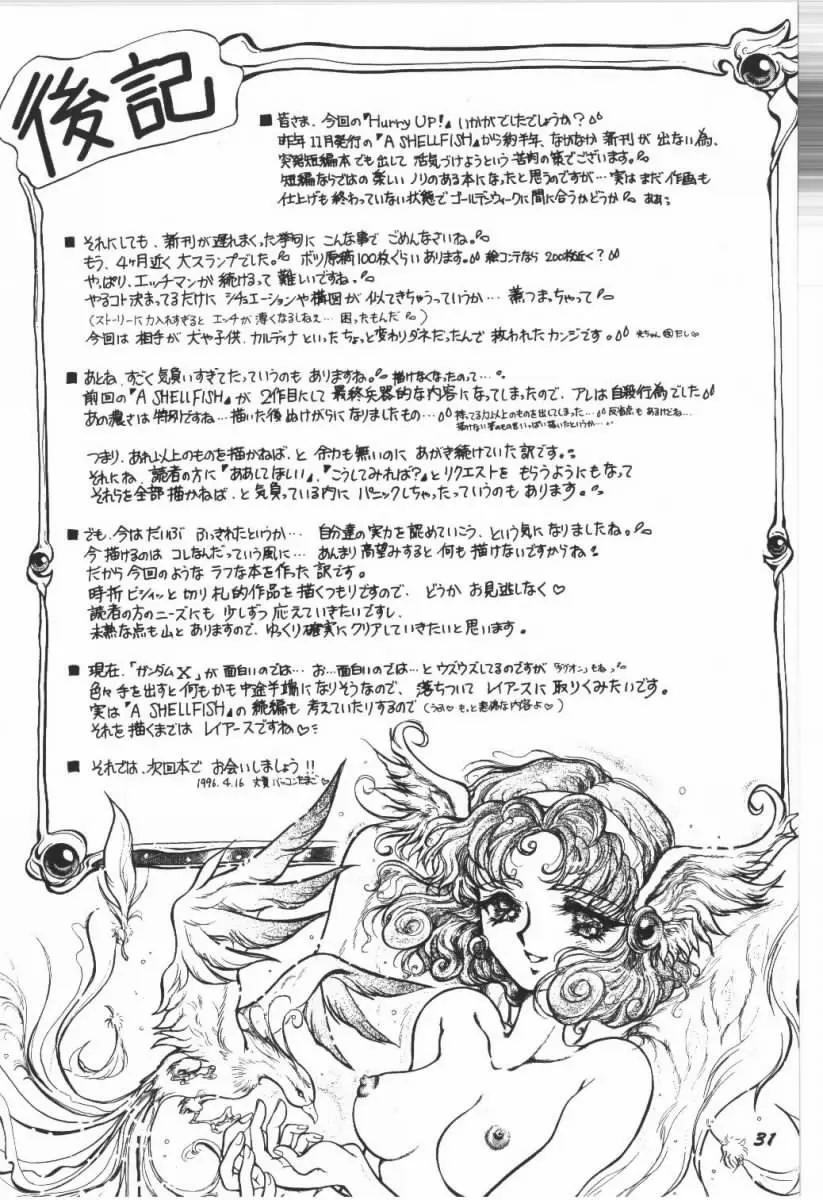 後記
■皆さま、今回の『Hurry UP!』いかがでしたでしょうか？
昨年11月発行の『A SHELLFISH』から約半年、なかなか新刊が出ない為、
突発短編本でも出して活気づけようという苦肉の策でございます。
短編ならではの楽しいノリのある本になったと思うのですが…実はまだ作画も
仕上げも終わっていない状態でゴールデンウィークに間に合うかどうか。ああ
■それにしても、新刊が遅れまくった挙句にこんな事でごめんなさいね。
もう、4ヶ月近く大スランプでした。ボツ原稿100枚ぐらいあります。絵コンテなら200枚近く？
やっぱり、エッチマンガ続けるって難しいですね。
やるコト決まってるだけにシチュエーションや構図が似てきちゃうっていうか…煮つまっちゃって
（ストーリーに力入れすぎるとエッチが薄くなるしねェ…困ったもんだ）
今回は相手が犬や子供、カルディナといったちょっと変わりダネだったんで救われたカンジです。
■あとね、すごく気負いすぎてたっていうのもありますね。描けなくなったのって…
前回の『A SHELLFISH』が2作目にして最終兵器的な内容になってしまったので、アレは自殺行為でした
あの濃さは特別ですね…描いた後ぬけがらになりましたもの…持ってる力以上のものを出してしまった…反省点もあるけどね…
つまり、あれ以上のものを描かねば、と余力も無いのにあがき続けていた訳です。
それにね、読者の方に『ああしてほしい』、『こうしてみれば？』とリクエストをもらうようにもなって
それらを全部描かねば、と気負っている内にパニックしちゃったっていうのもあります。
■でも、今はだいぶふっきれたというか…自分達の実力を認めていこう、という気になりましたね。
今描けるのはコレなんだっていう風に…あんまり高望みすると何も描けないですからね
だから今回のようなラフな本を作った訳です。
時折ビシィッと切り札的作品を描くつもりですので、どうかお見逃しなく♡
読者の方のニーズにも少しずつ応えていきたいですし、
未熟な点も山とありますので、ゆっくり確実にクリアしていきたいと思います。
■現在、「ガンダムX」が面白いのでは…お…面白いのでは…とウズウズしてるのですが
色々手を出すと何もかも中途半端になりそうなので、落ちついてレイアースに取りくみたいです。
実は『A SHELLFISH』の続編も考えていたりするので（うふ♡もっと悪趣な内容よ♡）
それを描くまではレイアースですね♡
■それでは、次回本でお会いしましょう!!
1996.4.16
31